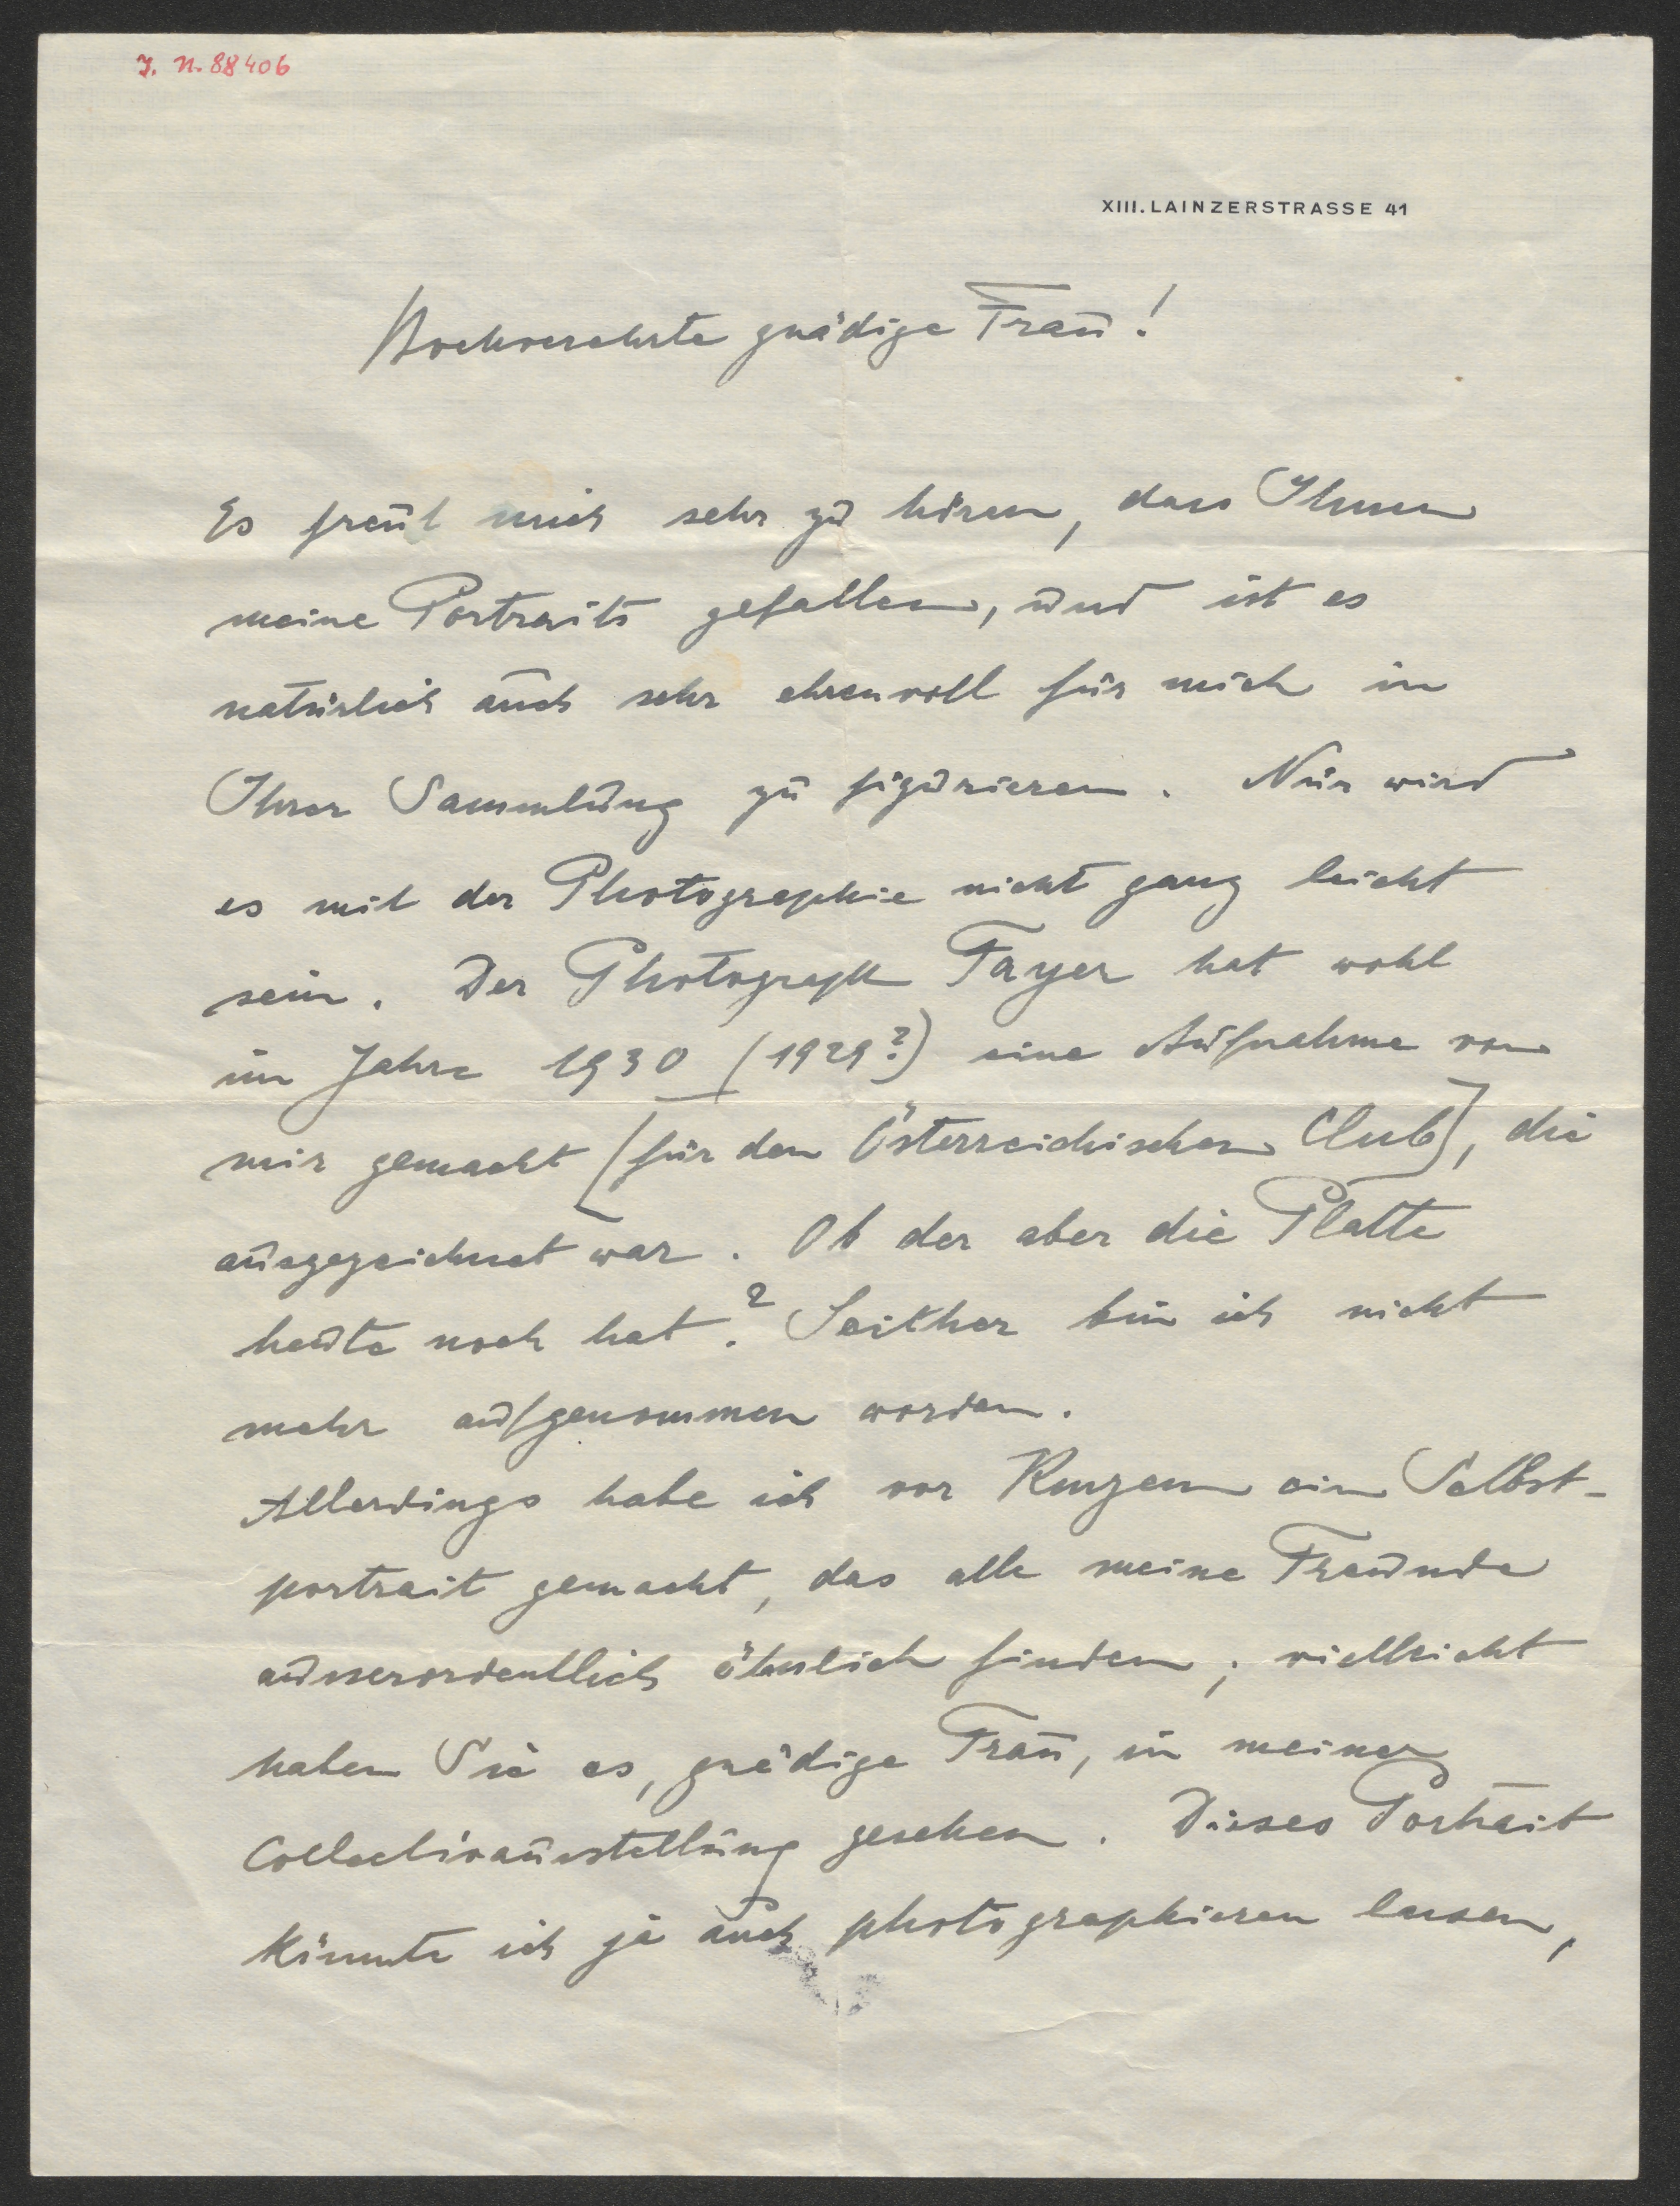 J. N. 88406
XIII. LAINZERSTRASSE 41
Hochverehrte gnädige Frau!
Es freut mich sehr zu hören, dass Ihnen
meine Portraits gefallen, und ist es
natürlich auch sehr ehrenvoll für mich in
Ihrer Sammlung zu figurieren. Nur wird
es mit der Photographie nicht ganz leicht
sein. Der Photograph Fayer hat wohl
im Jahre 1930 (1929?) eine Aufnahme von
mir gemacht [für den Österreichischen Club], die
ausgezeichnet war. Ob der aber die Platte
heute noch hat? Seither bin ich nicht
mehr aufgenommen worden.
Allerdings habe ich vor Kurzem ein Selbst-
portrait gemacht, das alle meine Freunde
ausserordentlich ähnlich finden; vielleicht
haben Sie es, gnädige Frau, in meiner
Collectivausstellung gesehen. Dieses Portrait
könnte ich ja auch photographieren lassen,